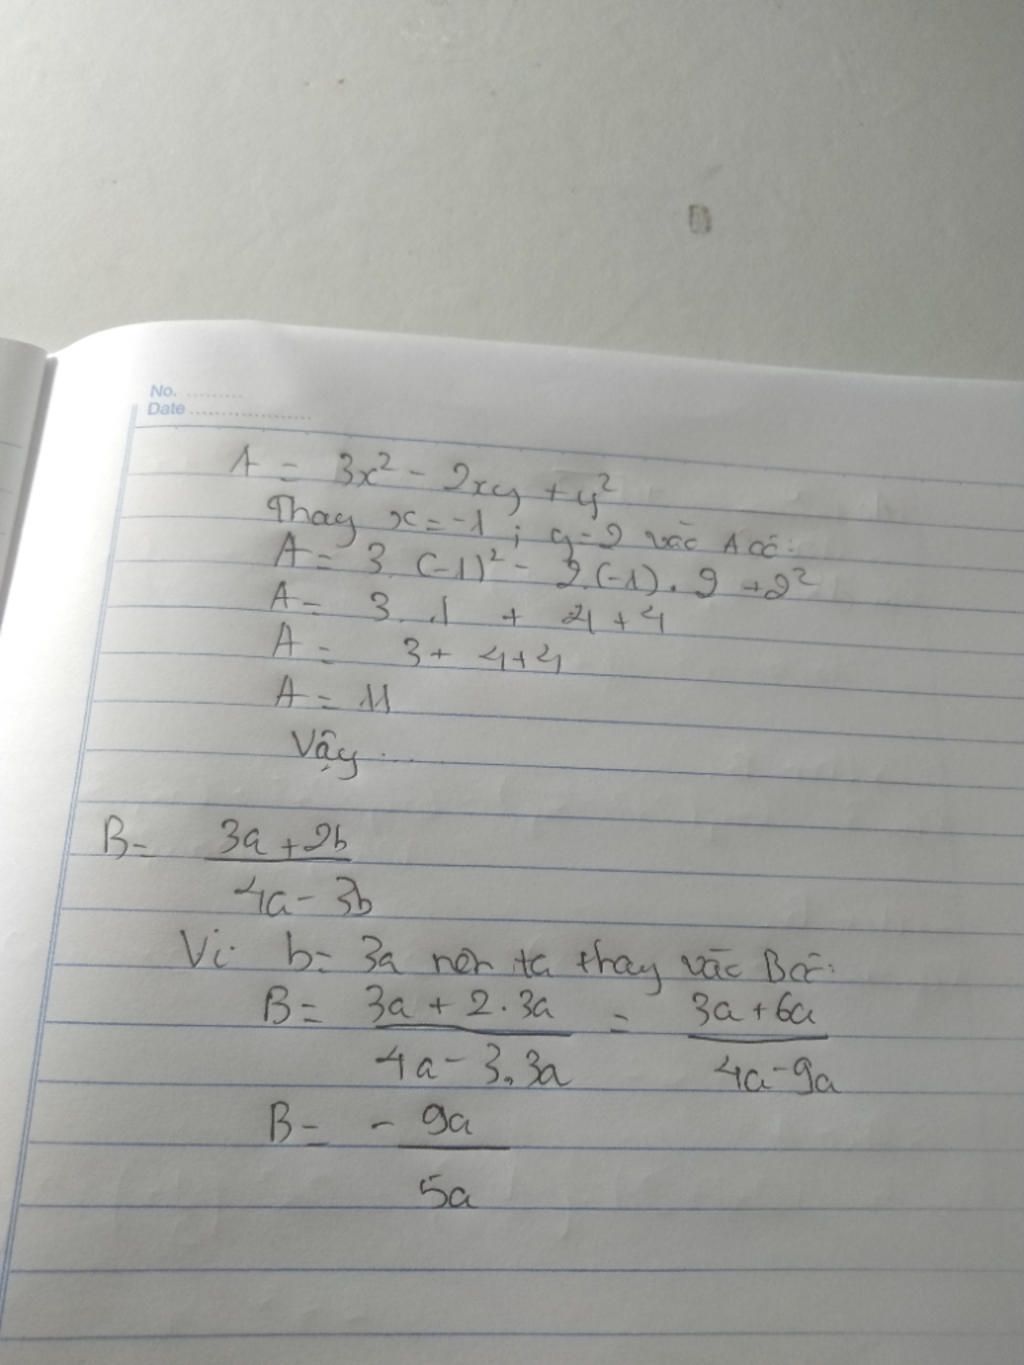 No. ..........
Date ....................
A = 3x² - 2xy + y²
Thay x = -1 ; y = 2 vào A có:
A = 3 (-1)² - 2(-1) . 2 + 2²
A = 3 . 1 + 4 + 4
A = 3 + 4 + 4
A = 11
Vậy ...
B = (3a + 2b)/(4a - 3b)
Vì b = 3a nên ta thay vào B có:
B = (3a + 2 . 3a)/(4a - 3 . 3a) = (3a + 6a)/(4a - 9a)
B = - 9a/5a